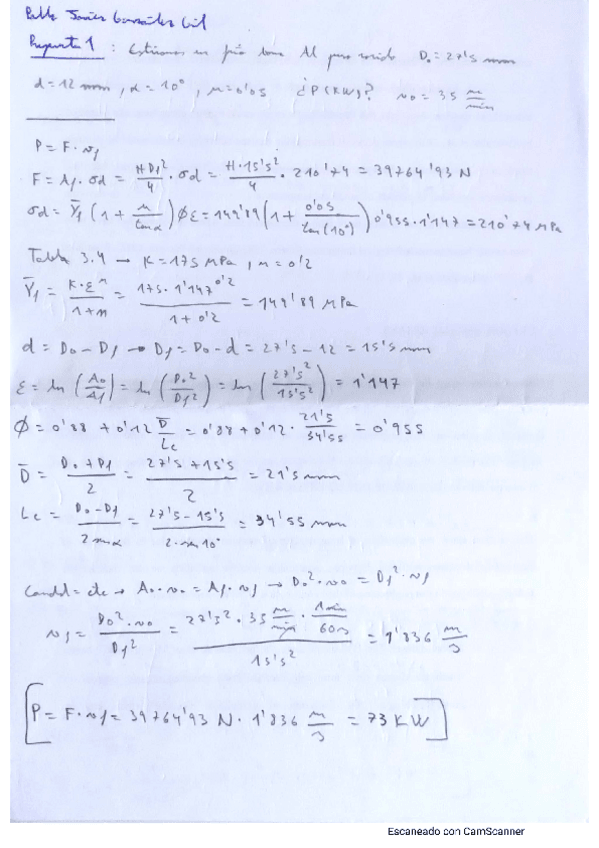 Pablo Javier González Gil
Pregunta 1: Estirado en frío barra Al puro recocido D₀ = 27'5 mm
d = 12 mm, α = 10°, μ = 0'05 ¿P (KW)? v₀ = 35 m/min
P = F · vf
F = Af · σd = πDf²/4 · σd = π·15'5²/4 · 210'74 = 39764'93 N
σd = Ȳf (1 + μ/tanα) φ ε = 149'89 (1 + 0'05/tan(10°)) 0'955 · 1'147 = 210'74 MPa
Tabla 3.4 → K = 175 MPa, n = 0'2
Ȳf = K·εⁿ/1+n = 175 · 1'147^0'2/1 + 0'2 = 149'89 MPa
d = D₀ - Df → Df = D₀ - d = 27'5 - 12 = 15'5 mm
ε = ln (A₀/Af) = ln (D₀²/Df²) = ln (27'5²/15'5²) = 1'147
φ = 0'88 + 0'12 D̄/Lc = 0'88 + 0'12 · 21'5/34'55 = 0'955
D̄ = D₀ + Df/2 = 27'5 + 15'5/2 = 21'5 mm
Lc = D₀ - Df/2 sin α = 27'5 - 15'5/2 · sin 10° = 34'55 mm
Caudal = cte → A₀ · v₀ = Af · vf → D₀² · v₀ = Df² · vf
vf = D₀² · v₀/Df² = 27'5² · 35 m/min · 1min/60s/15'5² = 1'836 m/s
[P = F · vf = 39764'93 N · 1'836 m/s = 73 KW]
Escaneado con CamScanner